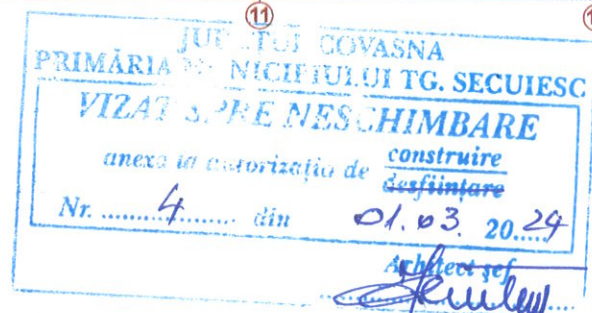 11
JUDEȚUL COVASNA
PRIMĂRIA MUNICIPIULUI TG. SECUIESC
VIZAT SPRE NESCHIMBARE
anexa la autorizația de construire
desființare
Nr. ........4........ din 01.03. 20..24
Arhitect șef